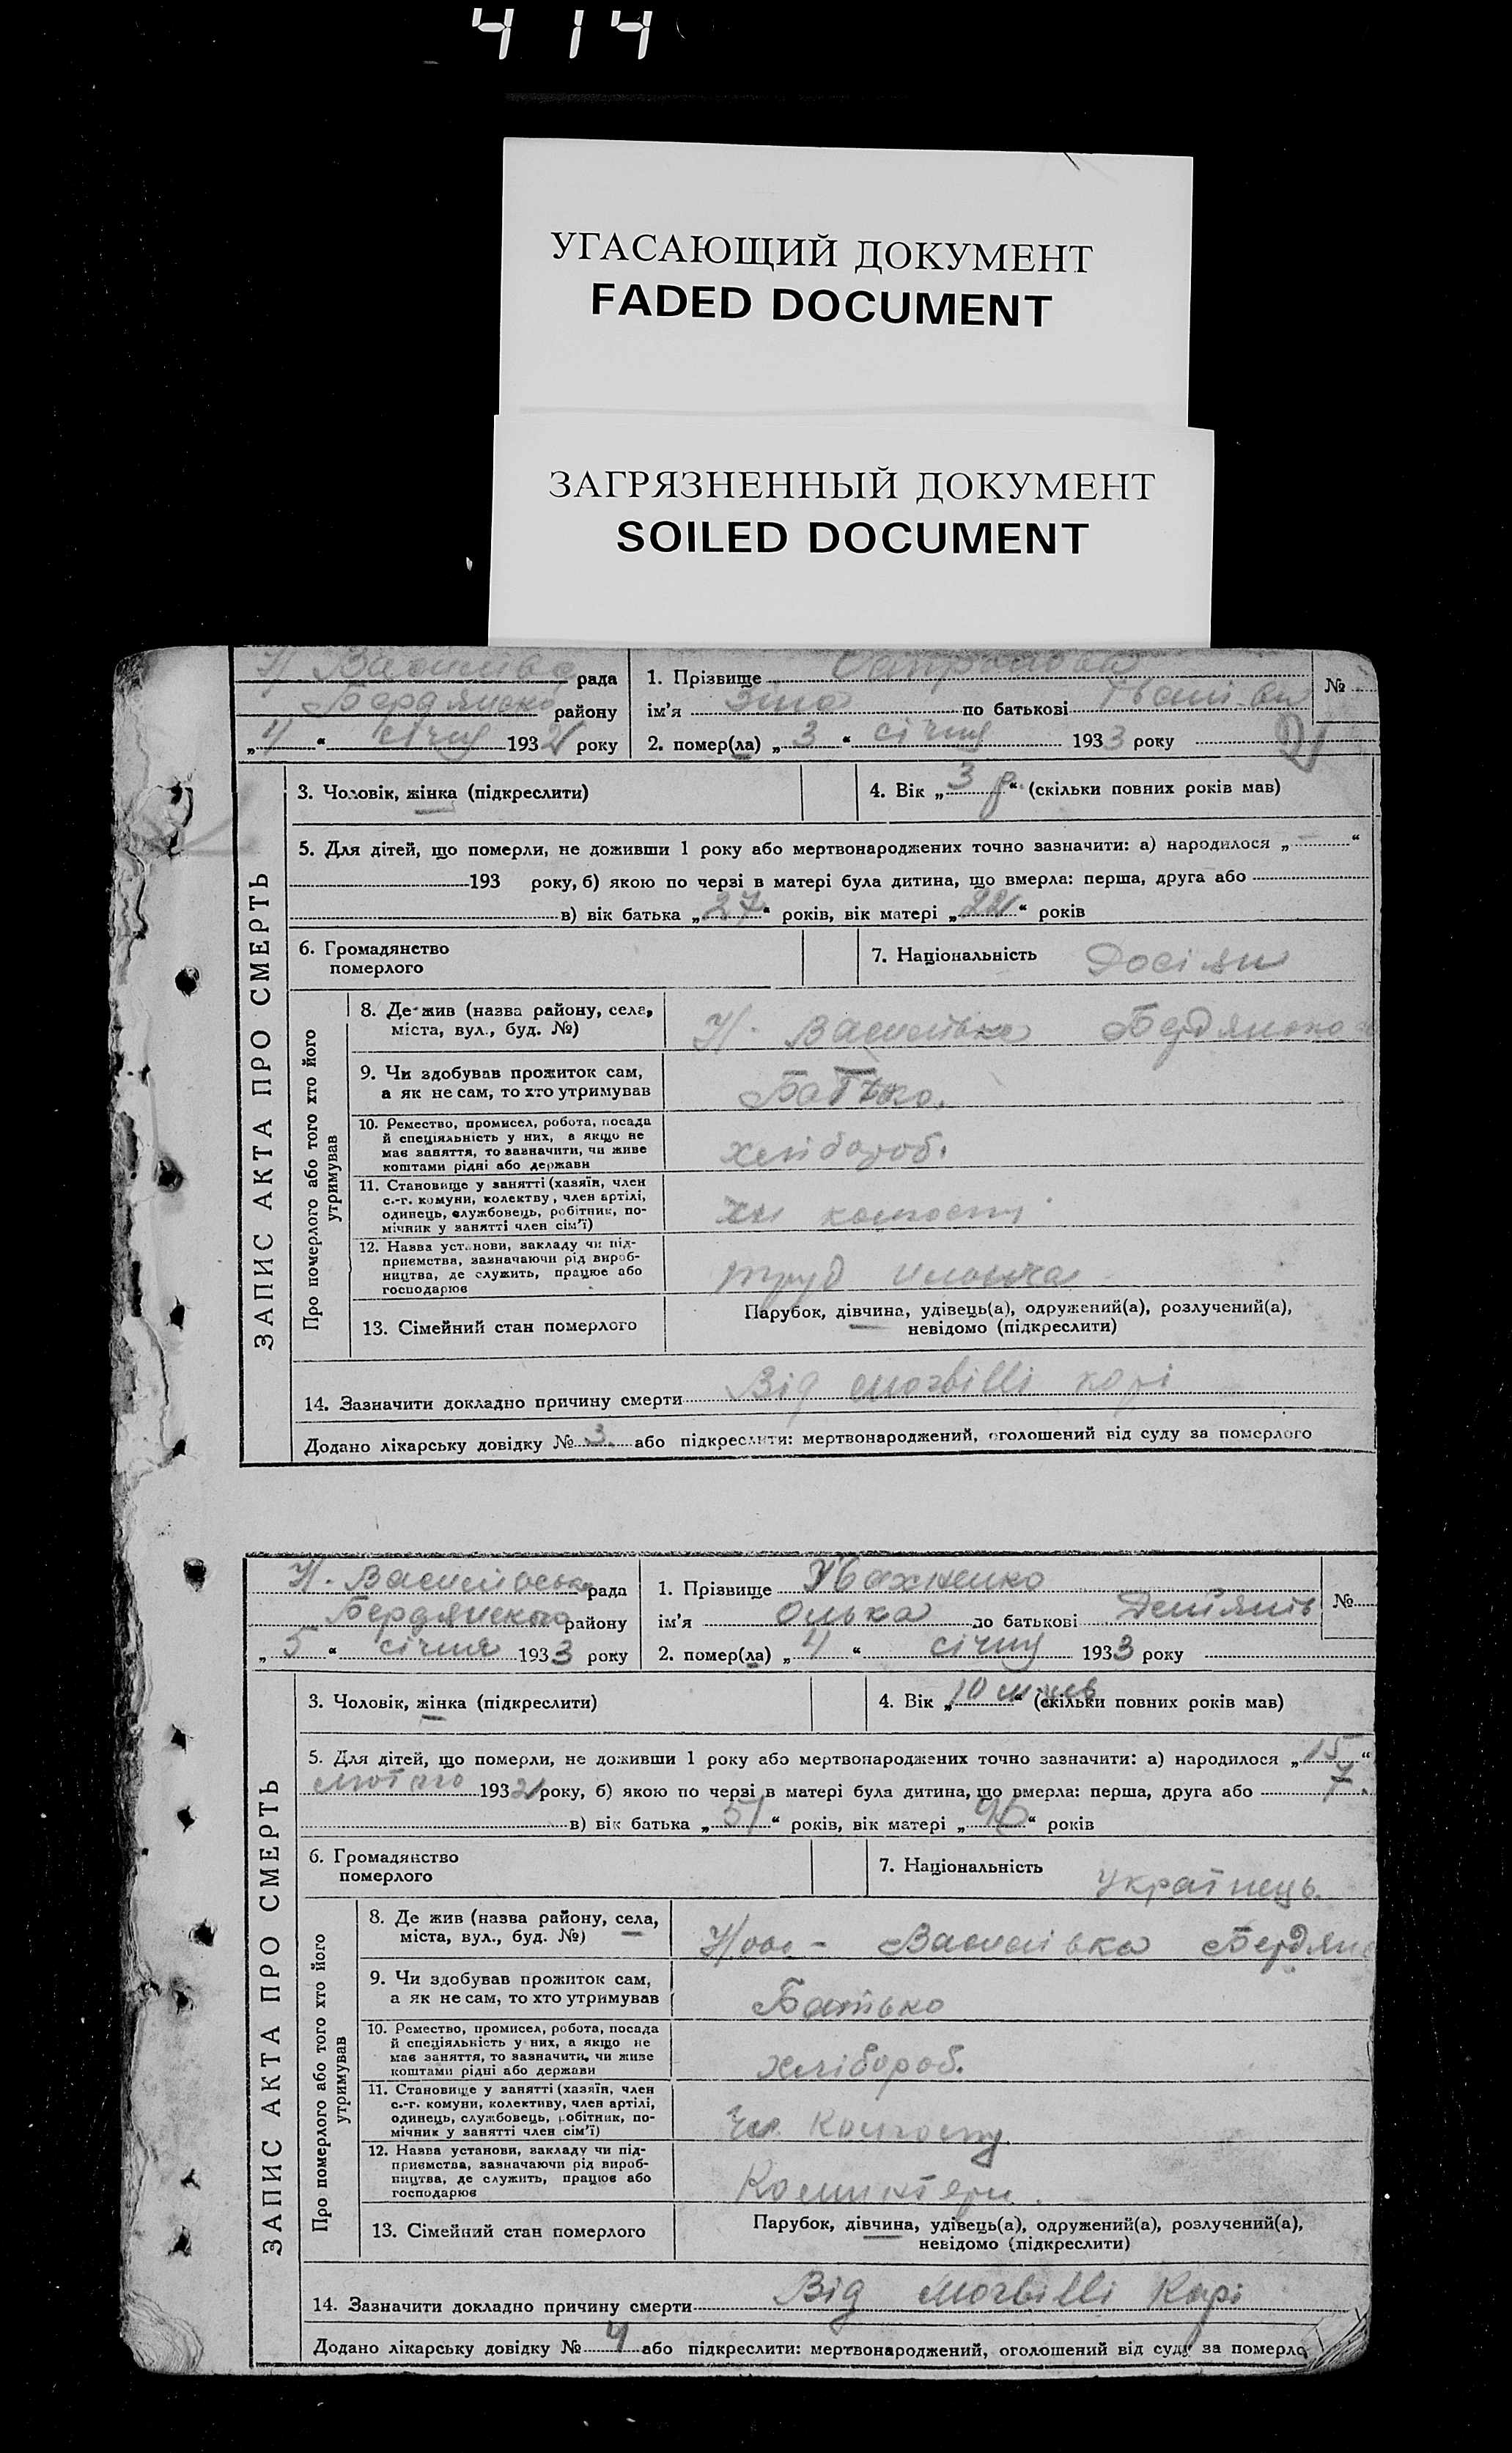 4 14
УГАСАЮЩИЙ ДОКУМЕНТ
FADED DOCUMENT
ЗАГРЯЗНЕННЫЙ ДОКУМЕНТ
SOILED DOCUMENT
рада
Бердянско району
„4“ січня 193 року
1. Прізвище
ім'я Зіна по батькові
2. помер(ла) „3“ січня 1933 року
№
ЗАПИС АКТА ПРО СМЕРТЬ
3. Чоловік, жінка (підкреслити)
4. Вік „3 р.“ (скільки повних років мав)
5. Для дітей, що померли, не доживши 1 року або мертвонароджених точно зазначити: а) народилося „–“
193 року, б) якою по черзі в матері була дитина, що вмерла: перша, друга або
в) вік батька „27“ років, вік матері „“ років
6. Громадянство
померлого
7. Національність Росіян
Про померлого або того хто його
утримував
8. Де жив (назва району, села,
міста, вул., буд. №)
Н. Василівка Бердянсько
9. Чи здобував прожиток сам,
а як не сам, то хто утримував
Батько.
10. Ремество, промисел, робота, посада
й спеціяльність у них, а якщо не
має заняття, то зазначити, чи живе
коштами рідні або держави
хлібороб.
11. Становище у занятті (хазяїн, член
с.-г. комуни, колектву, член артілі,
одинець, службовець, робітник, по-
мічник у занятті член сім'ї)
чл колгоспу
12. Назва установи, закладу чи під-
приємства, зазначаючи рід вироб-
ництва, де служить, працює або
господарює
труд
13. Сімейний стан померлого
Парубок, дівчина, удівець(а), одружений(а), розлучений(а),
невідомо (підкреслити)
14. Зазначити докладно причину смерти Від morbilli корі
Додано лікарську довідку № 3. або підкреслити: мертвонароджений, оголошений від суду за померлого
Н. Василівська рада
Бердянского району
„5“ січня 1933 року
1. Прізвище Ивахненко
ім'я Олька по батькові Дем'янів
2. помер(ла) „4“ січня 1933 року
№
ЗАПИС АКТА ПРО СМЕРТЬ
3. Чоловік, жінка (підкреслити)
4. Вік „10 м-ців“ (скільки повних років мав)
5. Для дітей, що померли, не доживши 1 року або мертвонароджених точно зазначити: а) народилося „15“
лютого 1932 року, б) якою по черзі в матері була дитина, що вмерла: перша, друга або 7.
в) вік батька „51“ років, вік матері „“ років
6. Громадянство
померлого
7. Національність Українець.
Про померлого або того хто його
утримував
8. Де жив (назва району, села,
міста, вул., буд. №)
Ново - Василівка Бердян
9. Чи здобував прожиток сам,
а як не сам, то хто утримував
Батько
10. Ремество, промисел, робота, посада
й спеціяльність у них, а якщо не
має заняття, то зазначити, чи живе
коштами рідні або держави
хлібороб.
11. Становище у занятті (хазяїн, член
с.-г. комуни, колективу, член артілі,
одинець, службовець, робітник, по-
мічник у занятті член сім'ї)
Чл. Колгоспу
12. Назва установи, закладу чи під-
приємства, зазначаючи рід вироб-
ництва, де служить, працює або
господарює
Комінтерн.
13. Сімейний стан померлого
Парубок, дівчина, удівець(а), одружений(а), розлучений(а),
невідомо (підкреслити)
14. Зазначити докладно причину смерти Від morbilli Корі
Додано лікарську довідку № 4 або підкреслити: мертвонароджений, оголошений від суду за померло